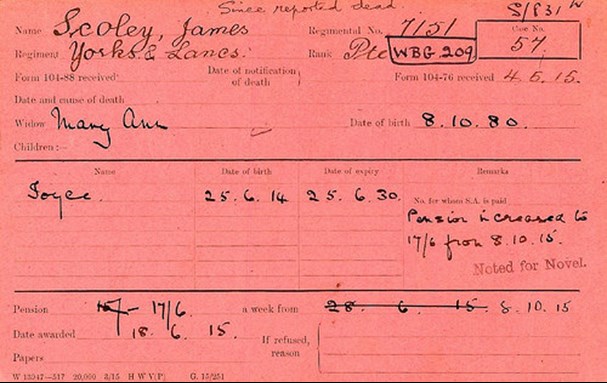 Since reported dead.
Name Scoley, James Regimental No. 7151 S/831 W
Regiment Yorks. & Lancs. Rank Pte WBG 209 Coe No. 57.
Form 104-88 received: Date of notification of death Form 104-76 received 4.5.15.
Date and cause of death
Widow Mary Ann Date of birth 8.10.80.
Children :—
Name Date of birth Date of expiry Remarks
Joyce. 25.6.14 25.6.30. No. for whom S.A. is paid
Pension increased to
17/6 from 8.10.15.
Noted for Novel.
Pension 15/- 17/6 a week from 28. 6. 15. 8.10.15
Date awarded 18.6.15. If refused, reason
Papers
W 13047—517 20,000 3/15 H W V(P) G. 15/251